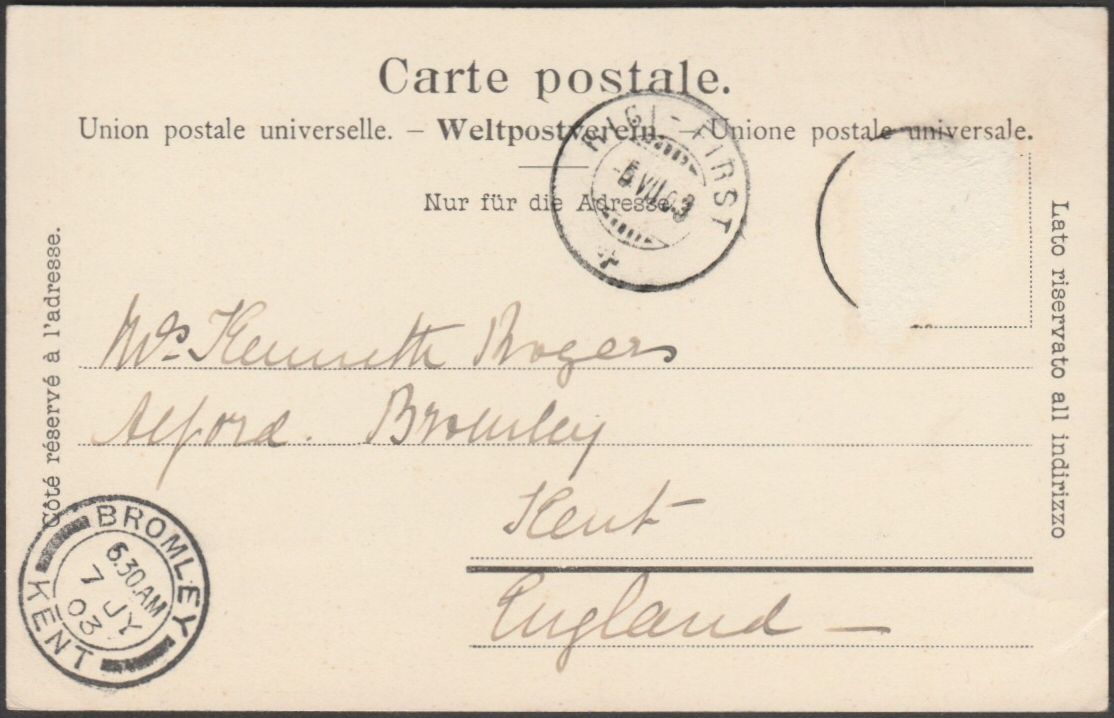 Carte postale.
Union postale universelle. – Weltpostverein. – Unione postale universale.
Nur für die Adresse.
RIGI-FIRST
VII 03
Côté réservé à l'adresse.
Lato riservato all indirizzo
Mrs Kenneth Rogers
Alford. Bromley
Kent
England —
BROMLEY
6.30AM
7 JY
03
KENT